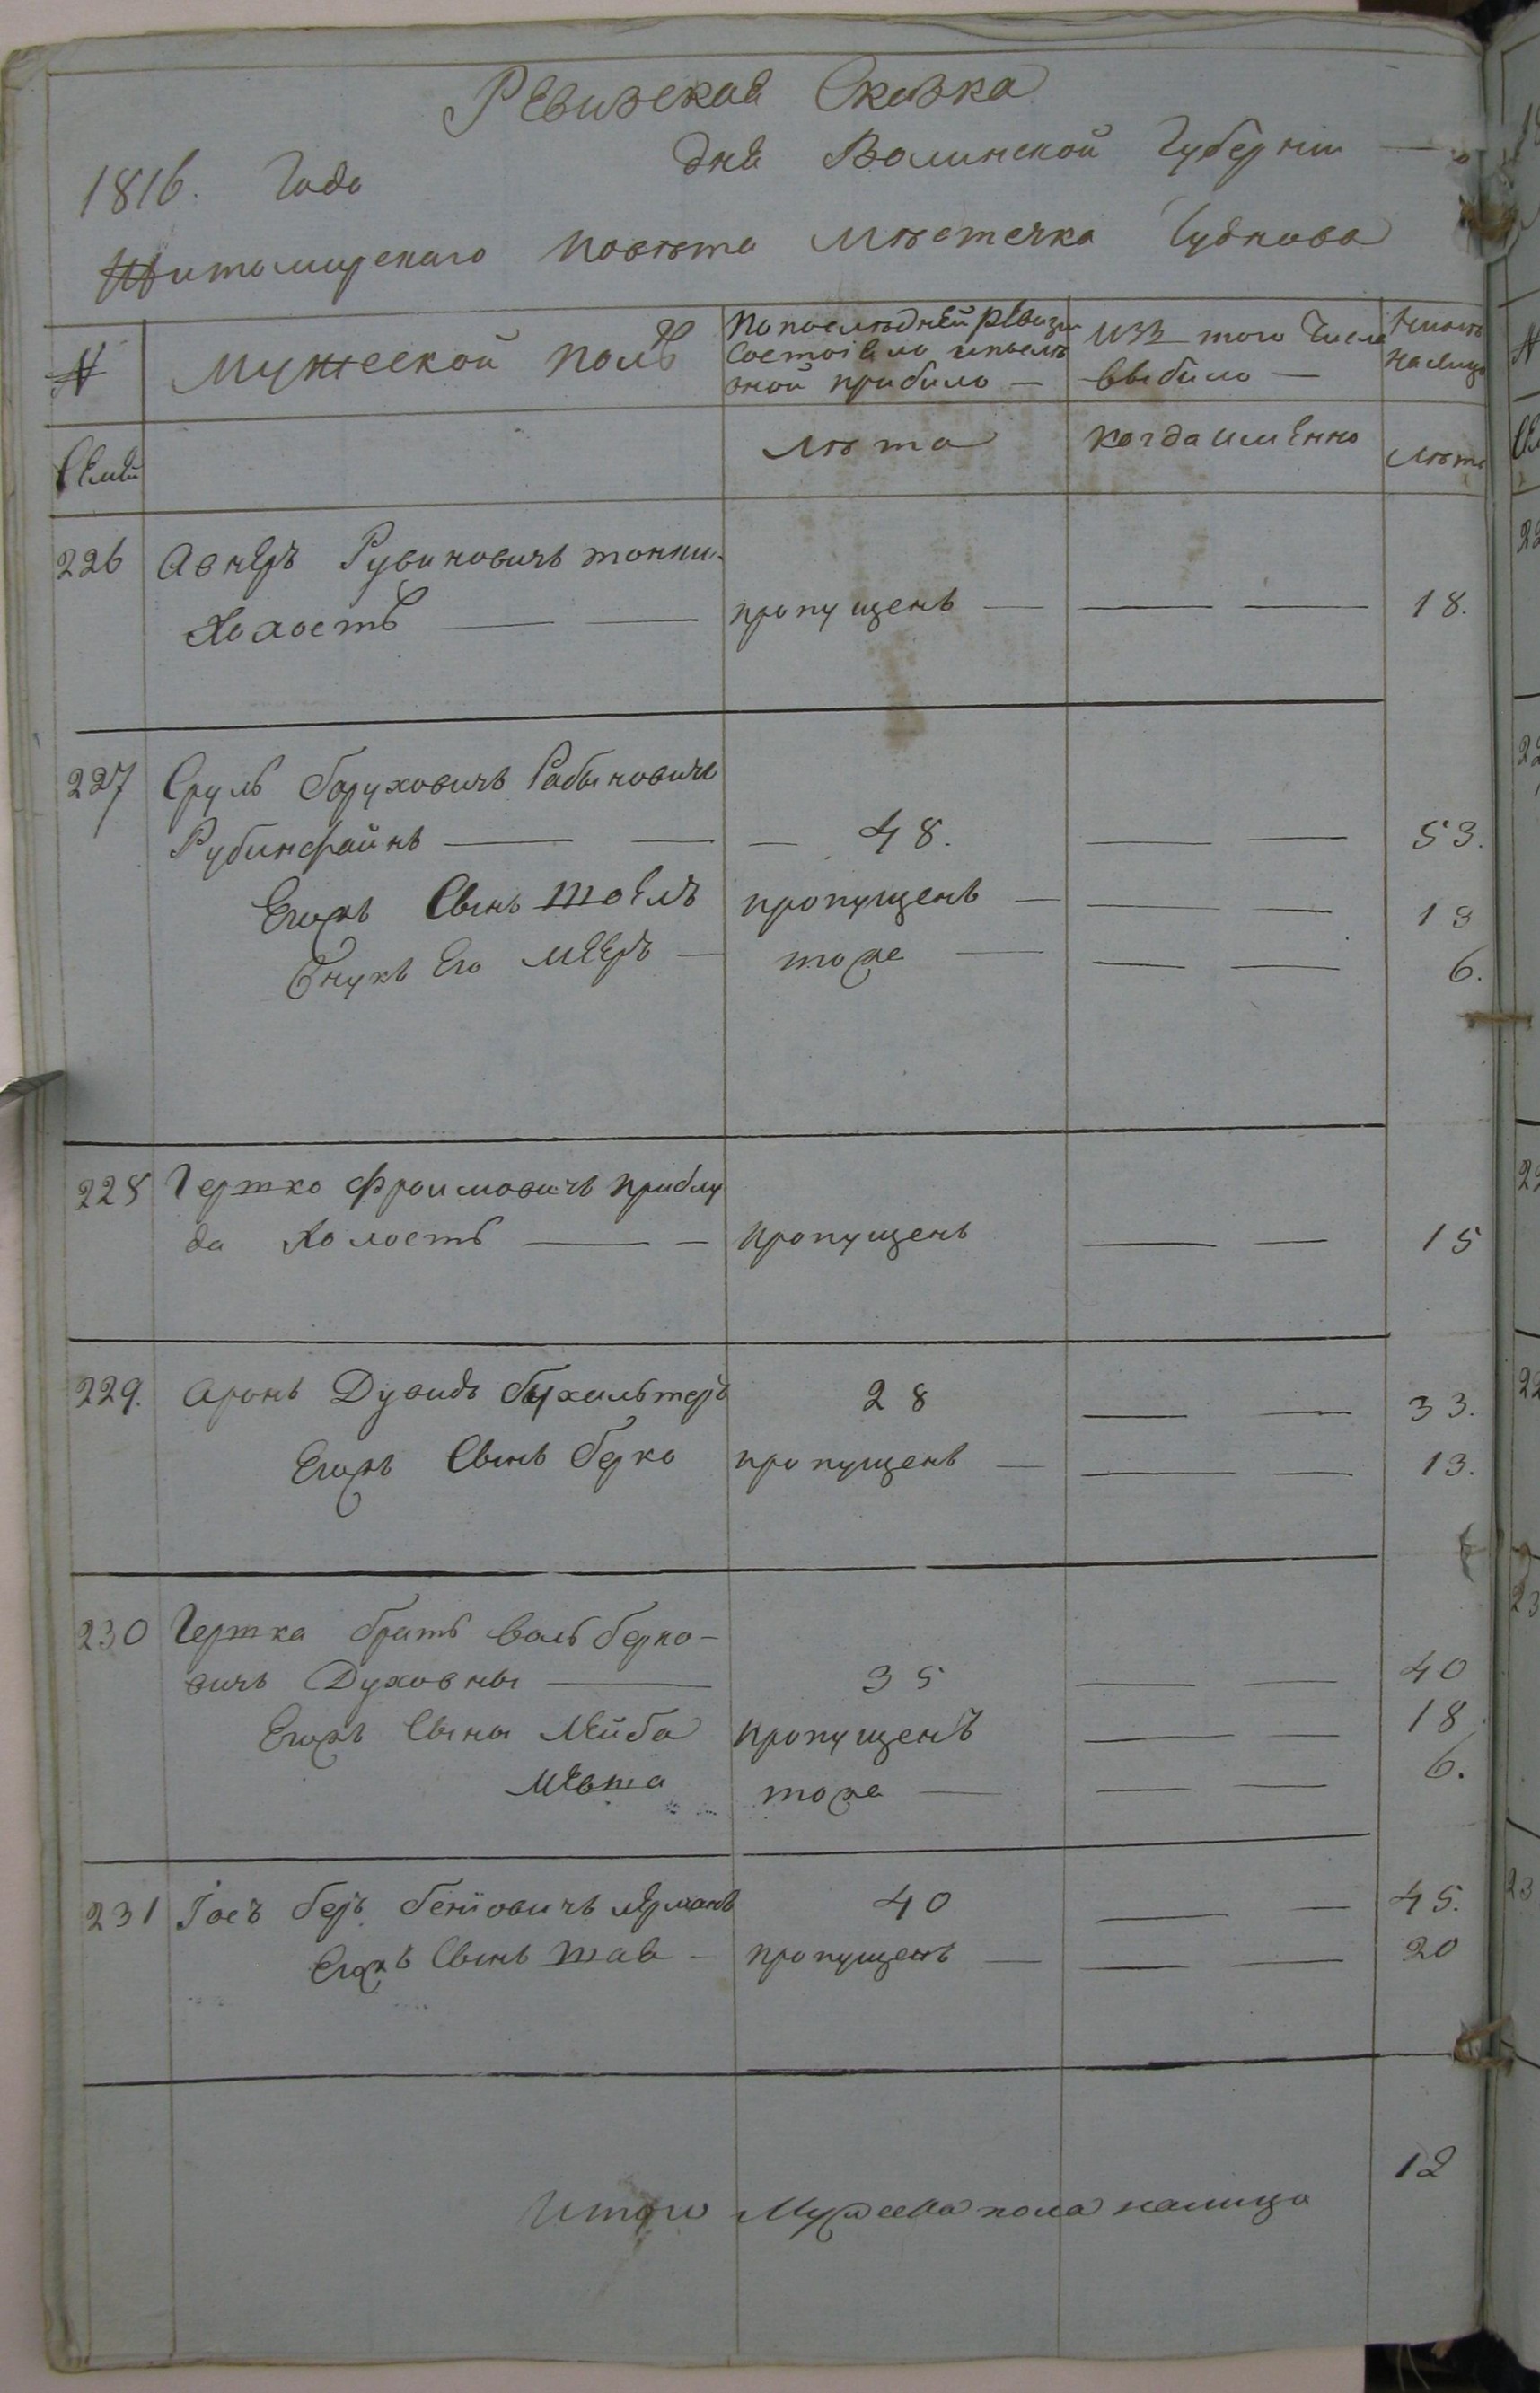 Ревизская Сказка
1816. Года дня Волинской Губернiи —
Житомирскаго Повѣта Мѣстечка Чуднова
№ Мужеской полъ По последней ревизи состояло и после оной прибило — Изъ того Числа выбило — Нынѣ на лицо
Семьи лѣта когда именно лѣта
226 Авнеръ Рувиновичъ
Холостъ — — пропущенъ — — — 18.
227 Сруль Боруховичъ Рабиновичъ
Рубинфайнъ — — — 48. — — 53.
Егожъ Сынъ Шоелъ пропущенъ — — — 19
Внукъ Его Мееръ — тоже — — — 6.
228 Гершко Фроимовичъ приблу
да Холостъ — — пропущенъ — — 15
229. Аронъ Дувидъ Бухальтеръ 28 — — 33.
Егожъ Сынъ Берко пропущенъ — — — 13.
230 Гершка братъ Воль Берко-
вичъ Духовны — 35 — — 40
Егожъ Сыны Лейба пропущенъ — — 18
тоже — — — 6.
231 Iосъ Беръ 40 — — 45.
Егожъ Сынъ Шае — пропущенъ — — — 20
Итого Мужеска пола налицо 12